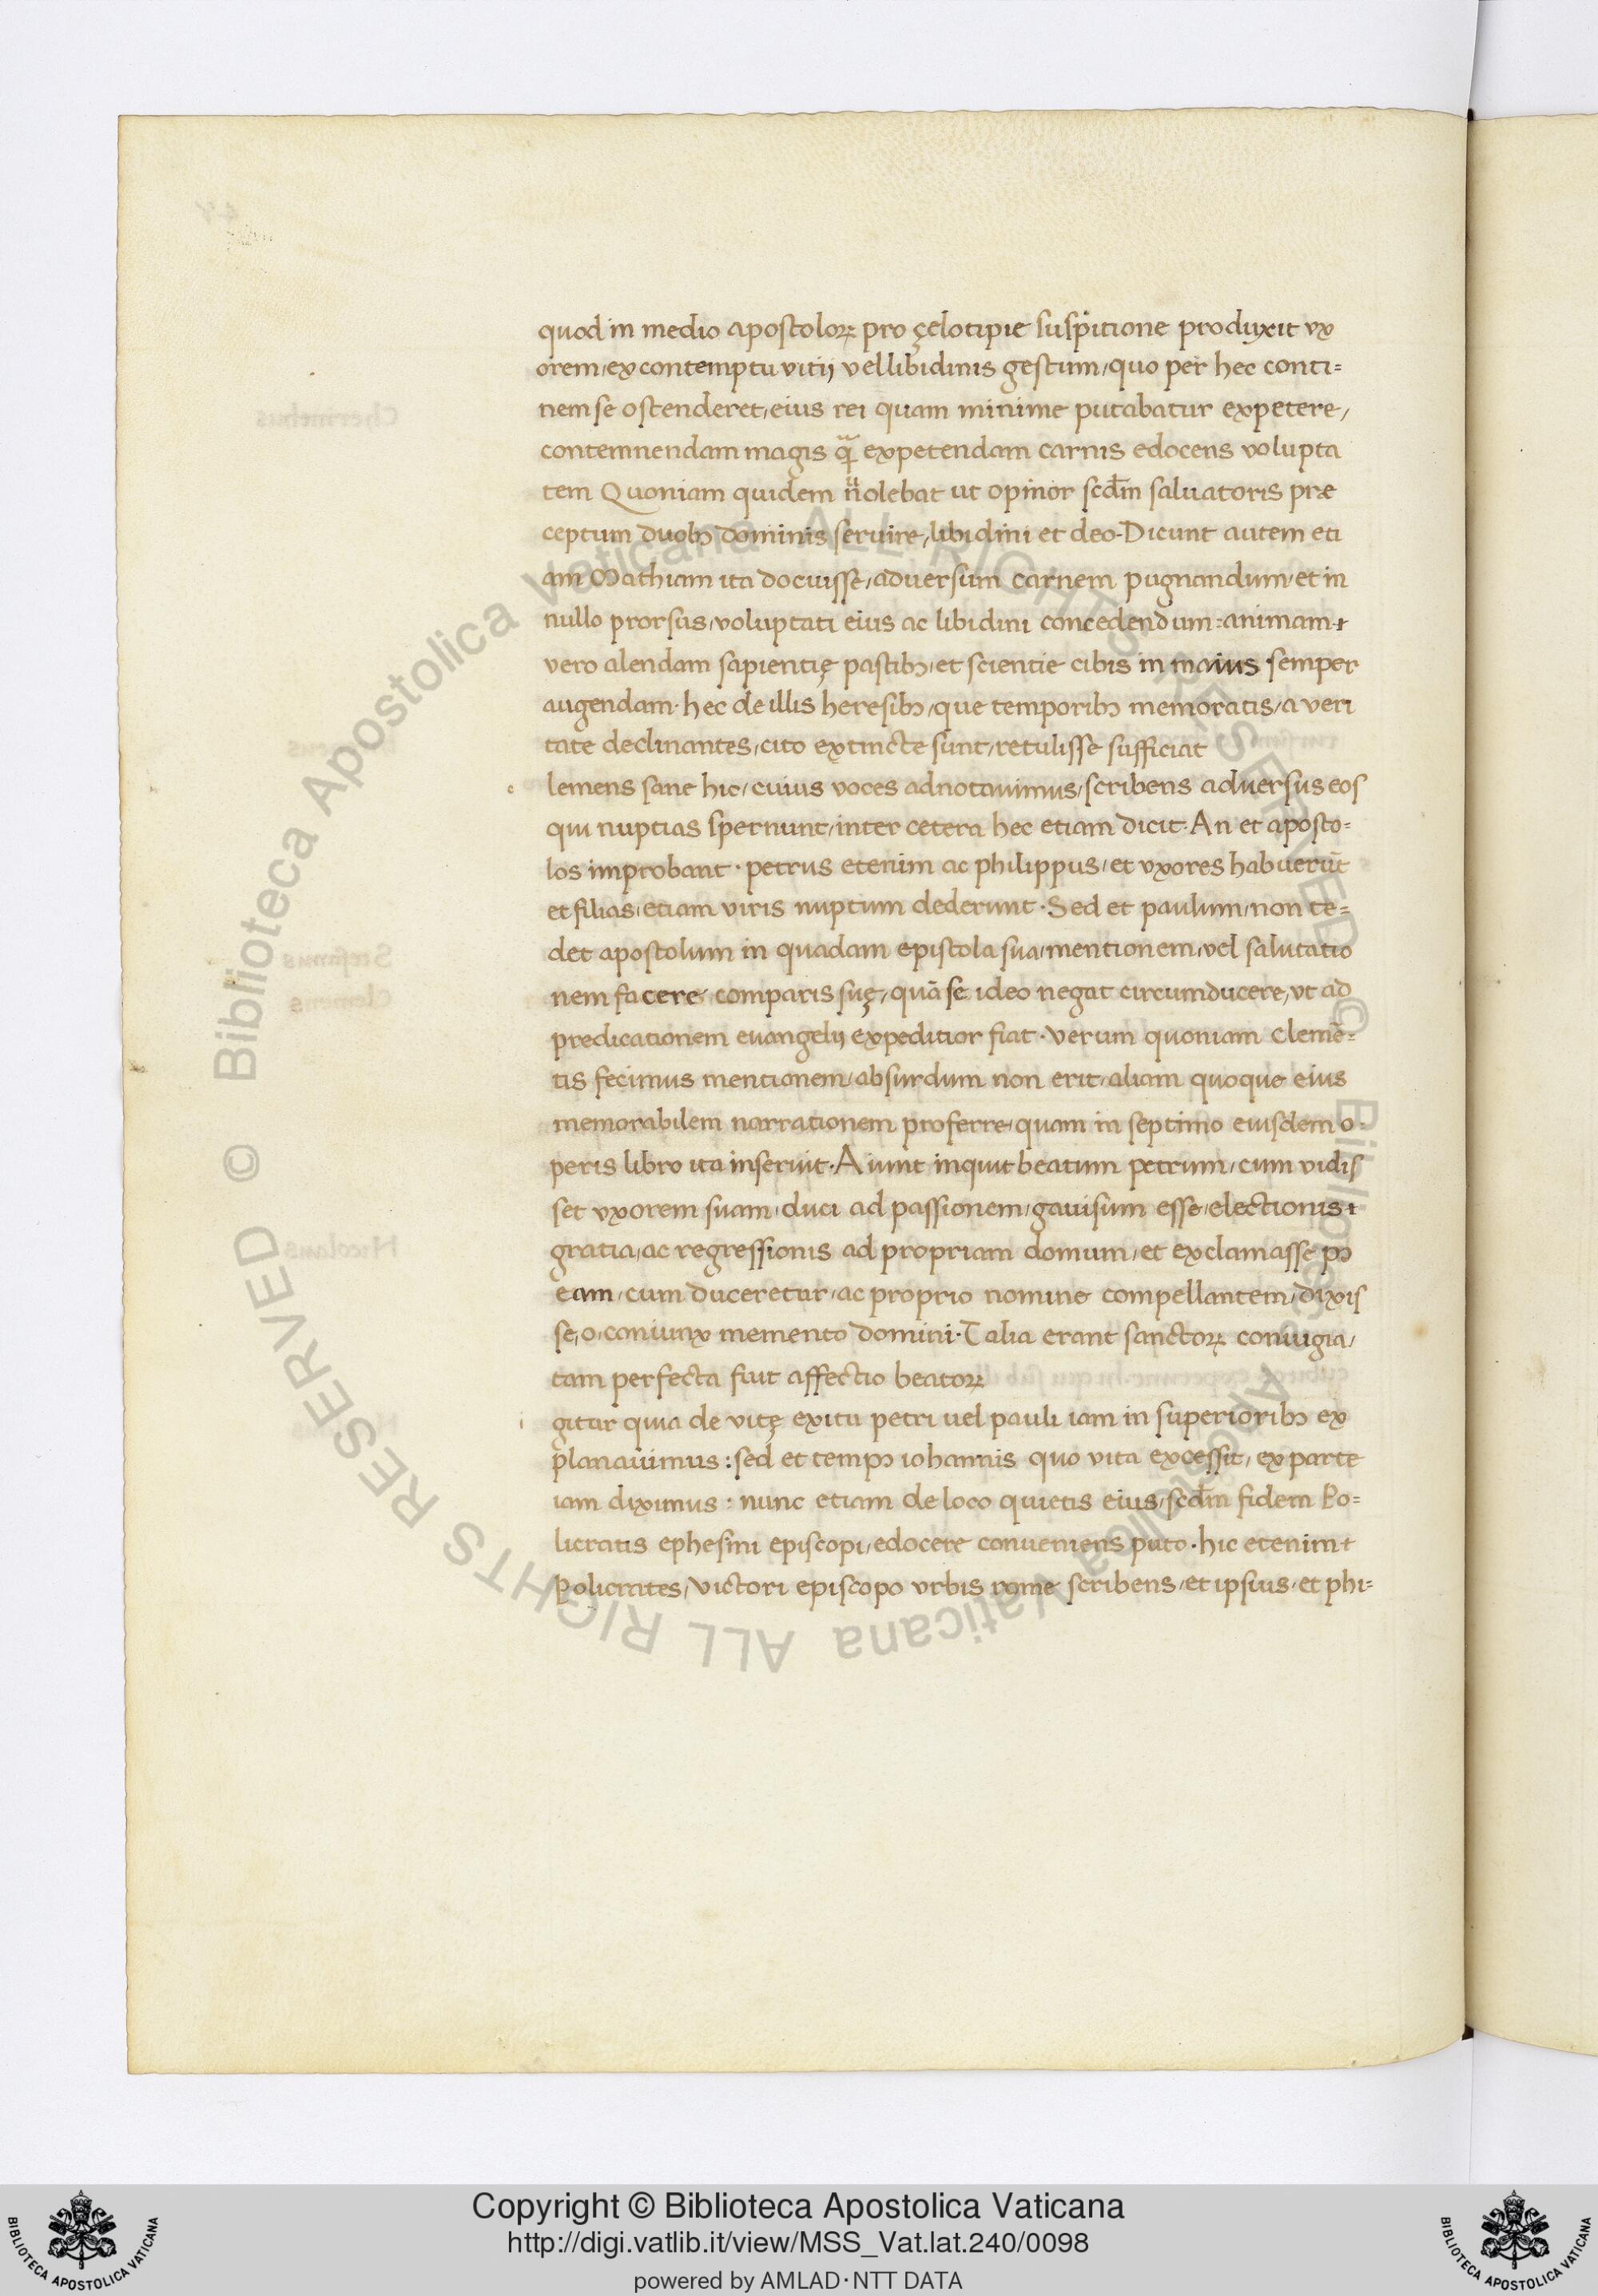 quod in medio apostoloꝝ pro çelotipie susp̱itione produxit vx
orem, ex contemptu vitij vel libidinis gestum, quo per hec conti=
nem se ostenderet, eius rei quam minime putabatur expetere,
contemnendam magis qᷓ expetendam carnis edocens volupta
tem Quoniam quidem nͦolebat ut opinor scd̄m saluatoris præ
ceptum duobꝫ dominis seruire, libidini et deo. Dicunt autem eti
am Mathiam ita docuisse, aduersum carnem pugnandum, et in
nullo prorsus, voluptati eius ac libidini concedendum: animam
vero alendam sapientię pastibꝫ, et scientie cibis in maius semper
augendam. hec de illis heresibꝫ, que temporibꝫ memoratis, a veri
tate declinantes, cito extincte sunt, retulisse sufficiat
c lemens sane hic, cuius voces adnotauimus, scribens aduersus eos
qui nuptias spernunt, inter cetera hec etiam dicit. An et aposto=
los improbant. petrus etenim ac philippus, et vxores habuerūt
et filias, etiam viris nuptum dederunt. Sed et paulum, non te=
det apostolum in quadam epistola sua, mentionem, vel salutatio
nem facere comparis suę, quā se ideo negat circumducere, vt ad
predicationem euangelij expeditior fiat. verum quoniam Clemē=
tis fecimus mentionem, absurdum non erit, aliam quoque eius
memorabilem narrationem proferre, quam in septimo eiusdem o
peris libro ita inseruit. Aiunt inquit beatum petrum, cum vidis
set vxorem suam, duci ad passionem, gauisum esse, electionis
gratia, ac regressionis ad propriam domum, et exclamasse pꝰ
eam, cum duceretur, ac proprio nomine compellantem, dixis
se, o, coniunx memento domini. Talia erant sanctoꝝ coniugia,
tam perfecta fuit affectio beatoꝝ
i gitur quia de vitę exitu petri uel pauli iam in superioribꝫ ex
planauimus: sed et tempꝰ iohannis quo vita excessit, ex parte
iam diximus: nunc etiam de loco quietis eius, scd̄m fidem Po=
licratis ephesini episcopi, edocere conueniens puto. hic etenim
Policrates, victori episcopo vrbis rome scribens, et ipsius, et phi=
Biblioteca Apostolica Vaticana ALL RIGHTS RESERVED © Biblioteca Apostolica Vaticana ALL RIGHTS RESERVED ©
Copyright © Biblioteca Apostolica Vaticana
http://digi.vatlib.it/view/MSS_Vat.lat.240/0098
powered by AMLAD·NTT DATA
BIBLIOTECA APOSTOLICA VATICANA
BIBLIOTECA APOSTOLICA VATICANA